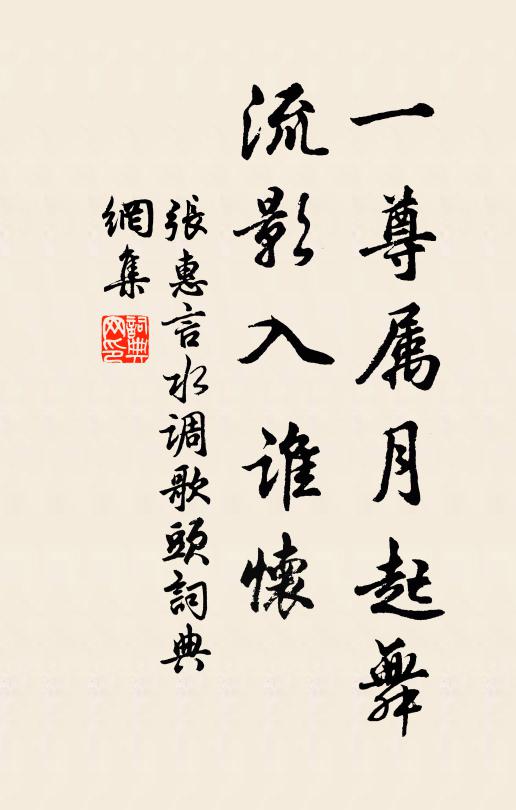 一尊属月起舞
流影入誰懷
張惠言水调歌頭詞典
網集
詞典
网印